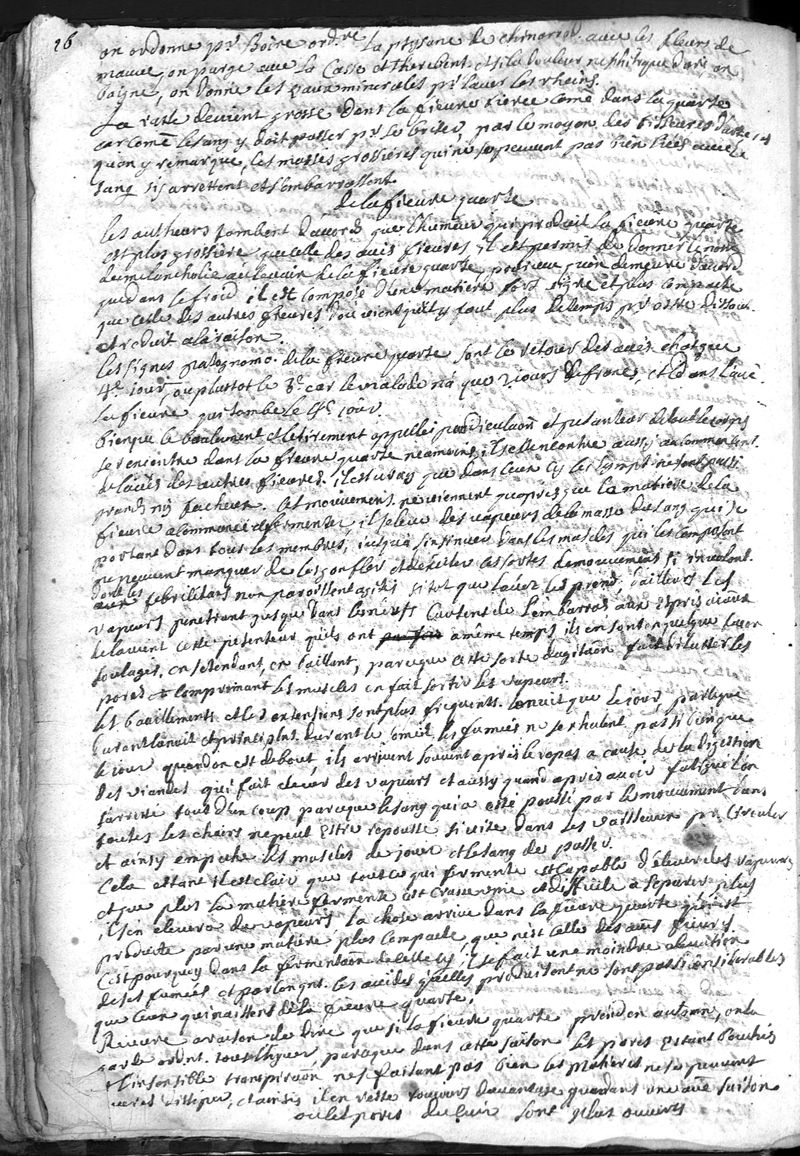 26
on ordonne pr Boire ordre La ptysane de avec les fleurs de
mauve, on purge avec la Casse et therebent. et si la douleur nephritique dure on
baigne, on donne les eaux minerales pr laver les rheins.
La ratte devient grosse dans la fievre tierce come dans la quarte
car come le sang y doit passer pr se briser, par le moyen des
qu'on y remarque, les masses grossieres qui ne se peuvent pas bien liées avec le
sang s'y arrettent et s'embarrassent.
de la fievre quarte
les autheurs tombent d'accord que l'humeur qui produit la fievre quarte
est plus grossiere que celle des autres fievres, il est permis de donner le nom
de melancholie au levain de la fievre quarte, pourveu qu'on demeure d'accord
que dans le froid il est composé d'une matiere fort aigre et plus compacte
que celle des autres fievres d'où vient qu'il y faut plus de temps pr estre dissout
et reduit a la raison.
les signes patognomo. de la fievre quarte sont le retour des accés chatque
4e jour, ou plustot le 3e car le malade n'a que 2 jours de franc, et dans l'autre
la fievre qui tombe le 4e jour.
bienque le baalement et l'etirement appellés pendiculaon et pesanteur de tout le corps
se rencontre dans la fievre quarte neamoins, il se rencontre aussy au commencement
de l'accés des autres fievres. il est vray que dans ceux cy les sympt ne sont pas si
grands ny facheux. Ces mouvemens ne viennent qu'aprés que la matiere de la
fievre a commencé de fermenter, il s'eleve des vapeurs de la masse du sang qui se
portant dans tous les membres, jusqu'à s'insinuer dans les muscles qui les composent
ne peuvent manquer de les gonfler et d'exciter ces sortes de mouvements si involont.
dont les febricitans non paroissent agités si tot que l'accez les prend, d'ailleurs les
vapeurs penetrant jusque dans les nerfs causent de l'embarras aux esprits
de la vient cette pesenteur qu'ils ont a même temps, ils en sont en quelque facon
soulagés, en s'etendant, en baillant, parceque cette sorte d'agitaon fait dilatter les
pores et comprimant les muscles en fait sortir les vapeurs.
les baaillements et les extensions sont plus frequents la nuit que le jour parceque
durant la nuit et principlnt. durant le someil, les fumées ne s'exhalent pas si bien que
le jour quand on est debout, ils arrivent souvent aprés le repas a cause de la digestion
des viandes qui fait elever des vapeurs et aussy quand aprés avoir fatigué l'on
s'arreste tout d'un coup parceque le sang qui a esté poussé par le mouvement dans
toutes les chairs ne peut estre repoussé si vite dans les vaisseaux pr circuler
et ainsy empeche les muscles de jouer et le sang de passer.
Cela estant il est clair que tout ce qui fermente est capable d'elever des vapeurs
et que plus la matiere fermentée est crasse et difficile a separer plus
il s'en elevera de vapeurs. la chose arrive dans la fievre quarte qui est
produite par une matiere plus compacte, que n'est celle des autres fievres.
C'est pourquoy dans la fermentaon de celle cy il se fait une moindre elevation
de ses fumées et par consqnt. les accidts qu'elles produisent ne sont pas si considerables
que ceux qui naissent de la fievre quarte.
Riviere a raison de dire que si la fievre quarte prend en automne, on la
garde ordnt. tout l'hyver, parceque dans cette saison les pores estant bouchés
et l'insensible transpiraon ne se faisant pas bien les matieres ne se peuvent
dissiper, et ainsi il en reste toujours davantage que dans une autre saison
ou les pores du cuir sont plus ouverts